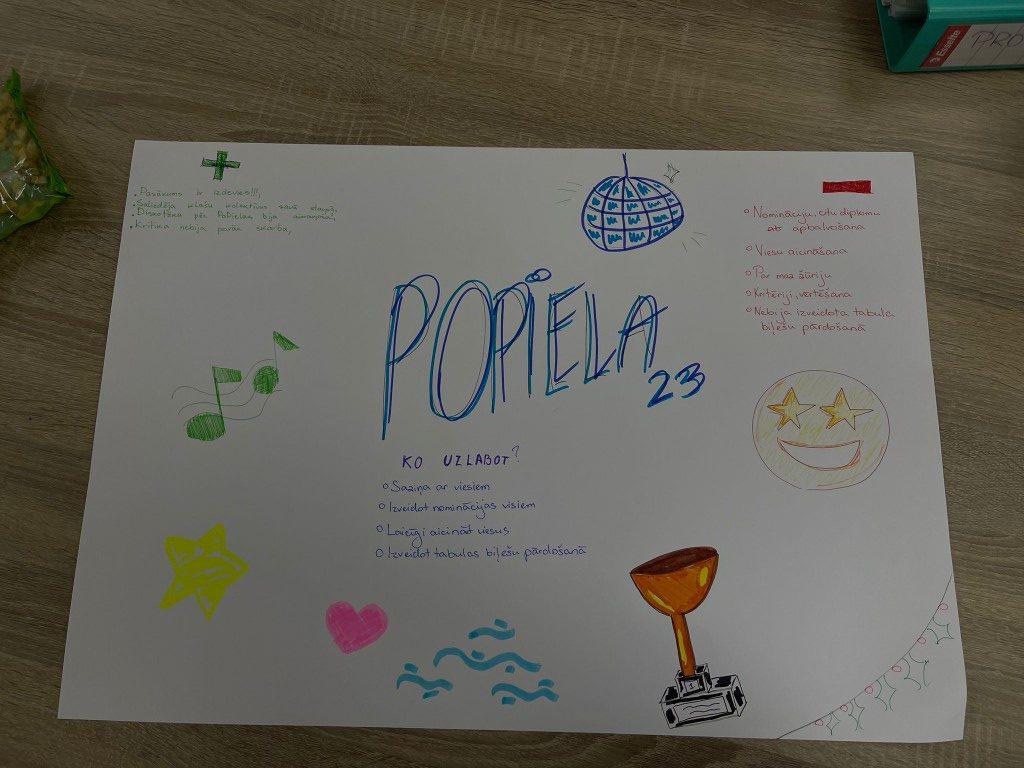 Esselte
PRO
+
• Pasākums ir izdevies!!!,
• Saliedēja klašu kolektīvu savā starpā,
• Diskotēka pēc PoPielas bija
• Kritika nebija pārāk skarba,
Nomināciju, citu diplomu
apbalvošana
Viesu aicināšana
Par maz žūriju
Kritēriji, vērtēšana
Nebija izveidota tabula
biļešu pārdošanā
POPIELA
23
KO UZLABOT?
Saziņa ar viesiem
Izveidot nominācijas visiem
Laicīgi aicināt viesus
Izveidot tabulas biļešu pārdošanā
1